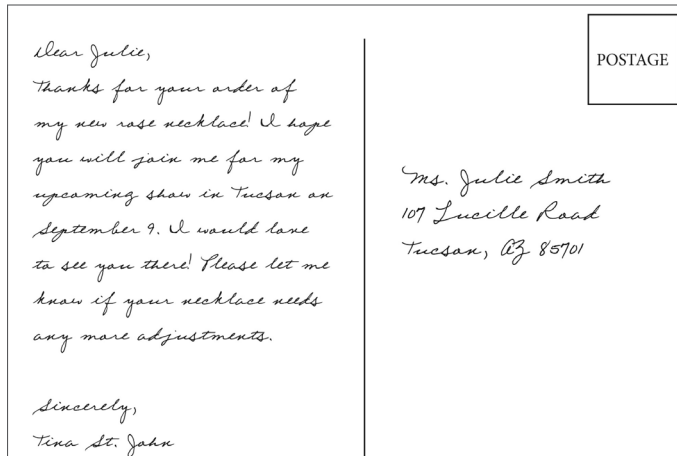 Dear Julie,
Thanks for your order of
my new rose necklace! I hope
you will join me for my
upcoming show in Tucson on
September 9. I would love
to see you there! Please let me
know if your necklace needs
any more adjustments.
Sincerely,
Tina St. John
POSTAGE
Ms. Julie Smith
107 Lucille Road
Tucson, AZ 85701